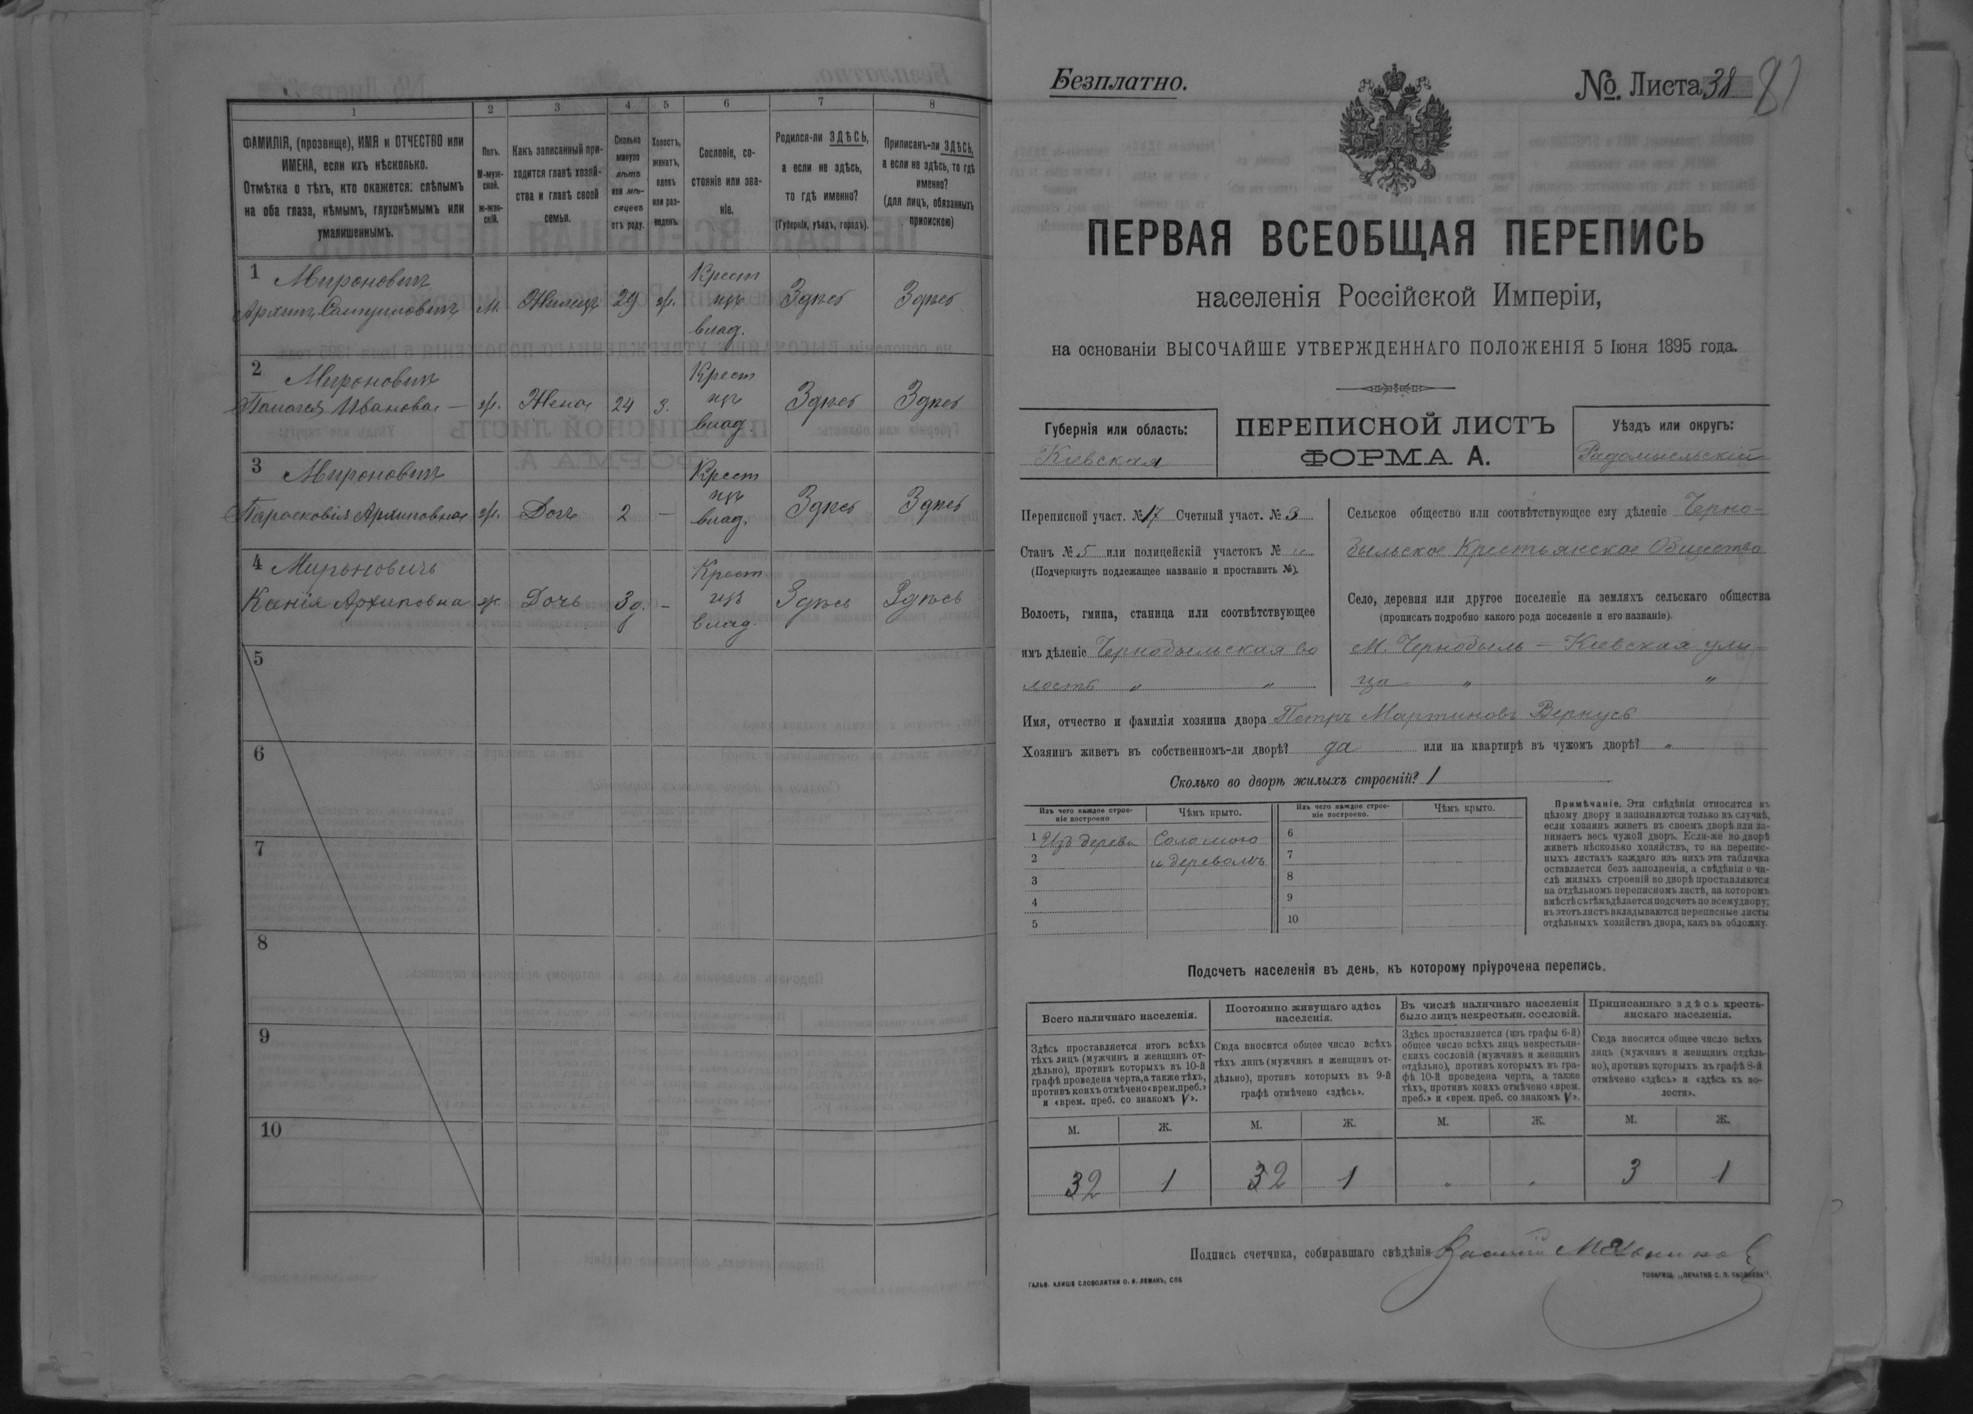 1 2 3 4 5 6 7 8
ФАМИЛІЯ, (прозвище), ИМЯ и ОТЧЕСТВО или
ИМЕНА, если ихъ нѣсколько.
Отмѣтка о тѣхъ, кто окажется: слѣпымъ
на оба глаза, нѣмымъ, глухонѣмымъ или
умалишеннымъ.
Полъ.
М-муж-
ской.
ж-жен-
скій.
Какъ записанный при-
ходится главѣ хозяй-
ства и главѣ своей
семьи.
Сколько
минуло
лѣтъ
или мѣ-
сяцевъ
отъ роду.
Холостъ,
женатъ,
вдовъ
или раз-
веденъ.
Сословіе, со-
стояніе или зва-
ніе.
Родился-ли ЗДѢСЬ,
а если не здѣсь,
то гдѣ именно?
(Губернія, уѣздъ, городъ).
Приписанъ-ли ЗДѢСЬ,
а если не здѣсь, то гдѣ
именно?
(для лицъ, обязанныхъ
припискою)
1 Мироновичъ Крест
Архипъ Самуиловичъ м. Жилецъ 29 ж. изъ Здѣсь Здѣсь
влад.
2 Мироновичъ Крест
Пелагея Иванова ж. Жена 24 з. изъ Здѣсь Здѣсь
влад.
3 Мироновичъ Крест
Парасковія Архиповна ж. Дочь 2 — изъ Здѣсь Здѣсь
влад.
4 Мироновичъ Крест
Ксенія Архиповна ж. Дочь 3д. — изъ Здѣсь Здѣсь
влад.
5
6
7
8
9
10
Безплатно.
№ Листа 38 81
ПЕРВАЯ ВСЕОБЩАЯ ПЕРЕПИСЬ
населенія Россійской Имперіи,
на основаніи ВЫСОЧАЙШЕ УТВЕРЖДЕННАГО ПОЛОЖЕНІЯ 5 Іюня 1895 года.
Губернія или область:
Кіевская
ПЕРЕПИСНОЙ ЛИСТЪ
ФОРМА А.
Уѣздъ или округъ:
Радомысльскій
Переписной участ. № 17 Счетный участ. № 3
Станъ № 5 или полицейскій участокъ № „
(Подчеркнуть подлежащее названіе и проставить №).
Волость, гмина, станица или соотвѣтствующее
имъ дѣленіе Чернобыльская во
лость „ „
Сельское общество или соотвѣтствующее ему дѣленіе Черно-
быльское Крестьянское Общество
Село, деревня или другое поселеніе на земляхъ сельскаго общества
(прописать подробно какого рода поселеніе и его названіе).
М. Чернобыль — Кіевская ули-
ца „ „
Имя, отчество и фамилія хозяина двора Петръ Мартиновъ Вернусь
Хозяинъ живетъ въ собственномъ-ли дворѣ? да или на квартирѣ въ чужомъ дворѣ? „
Сколько во дворѣ жилыхъ строеній? 1
Изъ чего каждое строе-
ніе построено
Чѣмъ крыто.
Изъ чего каждое строе-
ніе построено.
Чѣмъ крыто.
1 Изъ дерева Соломою 6
2 и деревомъ 7
3 8
4 9
5 10
Примѣчаніе. Эти свѣдѣнія относятся къ
цѣлому двору и заполняются только въ случаѣ,
если хозяинъ живетъ въ своемъ дворѣ или за-
нимаетъ весь чужой дворъ. Если-же во дворѣ
живетъ нѣсколько хозяйствъ, то на перепис-
ныхъ листахъ каждаго изъ нихъ эта табличка
оставляется безъ заполненія, а свѣдѣнія о чи-
слѣ жилыхъ строеній во дворѣ проставляются
на отдѣльномъ переписномъ листѣ, на которомъ
вмѣстѣ съ тѣмъ дѣлается подсчетъ по всему двору;
въ этотъ листъ вкладываются переписные листы
отдѣльныхъ хозяйствъ двора, какъ въ обложку.
Подсчетъ населенія въ день, къ которому пріурочена перепись.
Всего наличнаго населенія.
Здѣсь проставляется итогъ всѣхъ
тѣхъ лицъ (мужчинъ и женщинъ от-
дѣльно), противъ которыхъ въ 10-й
графѣ проведена черта, а также тѣхъ,
противъ коихъ отмѣчено «врем. преб.»
и «врем. преб. со знакомъ V».
Постоянно живущаго здѣсь
населенія.
Сюда вносится общее число всѣхъ
тѣхъ лицъ (мужчинъ и женщинъ от-
дѣльно), противъ которыхъ въ 9-й
графѣ отмѣчено «здѣсь».
Въ числѣ наличнаго населенія
было лицъ некрестьян. сословій.
Здѣсь проставляется (изъ графы 6-й)
общее число всѣхъ лицъ некрестьян-
скихъ сословій (мужчинъ и женщинъ
отдѣльно), противъ которыхъ въ гра-
фѣ 10-й проведена черта, а также
тѣхъ, противъ коихъ отмѣчено «врем.
преб.» и «врем. преб. со знакомъ V».
Приписаннаго здѣсь кресть-
янскаго населенія.
Сюда вносится общее число всѣхъ
лицъ (мужчинъ и женщинъ отдѣль-
но), противъ которыхъ въ графѣ 8-й
отмѣчено «здѣсь» и «здѣсь къ во-
лости».
М. Ж. М. Ж. М. Ж. М. Ж.
32 1 32 1 „ „ 3 1
Подпись счетчика, собиравшаго свѣдѣнія Василій Мельников
ГАЛЬВ. КЛИШЕ СЛОВОЛИТНИ О. И. ЛЕМАНЪ, СПБ
ТОВАРИЩ. „ПЕЧАТНЯ С. П. ЯКОВЛЕВА".